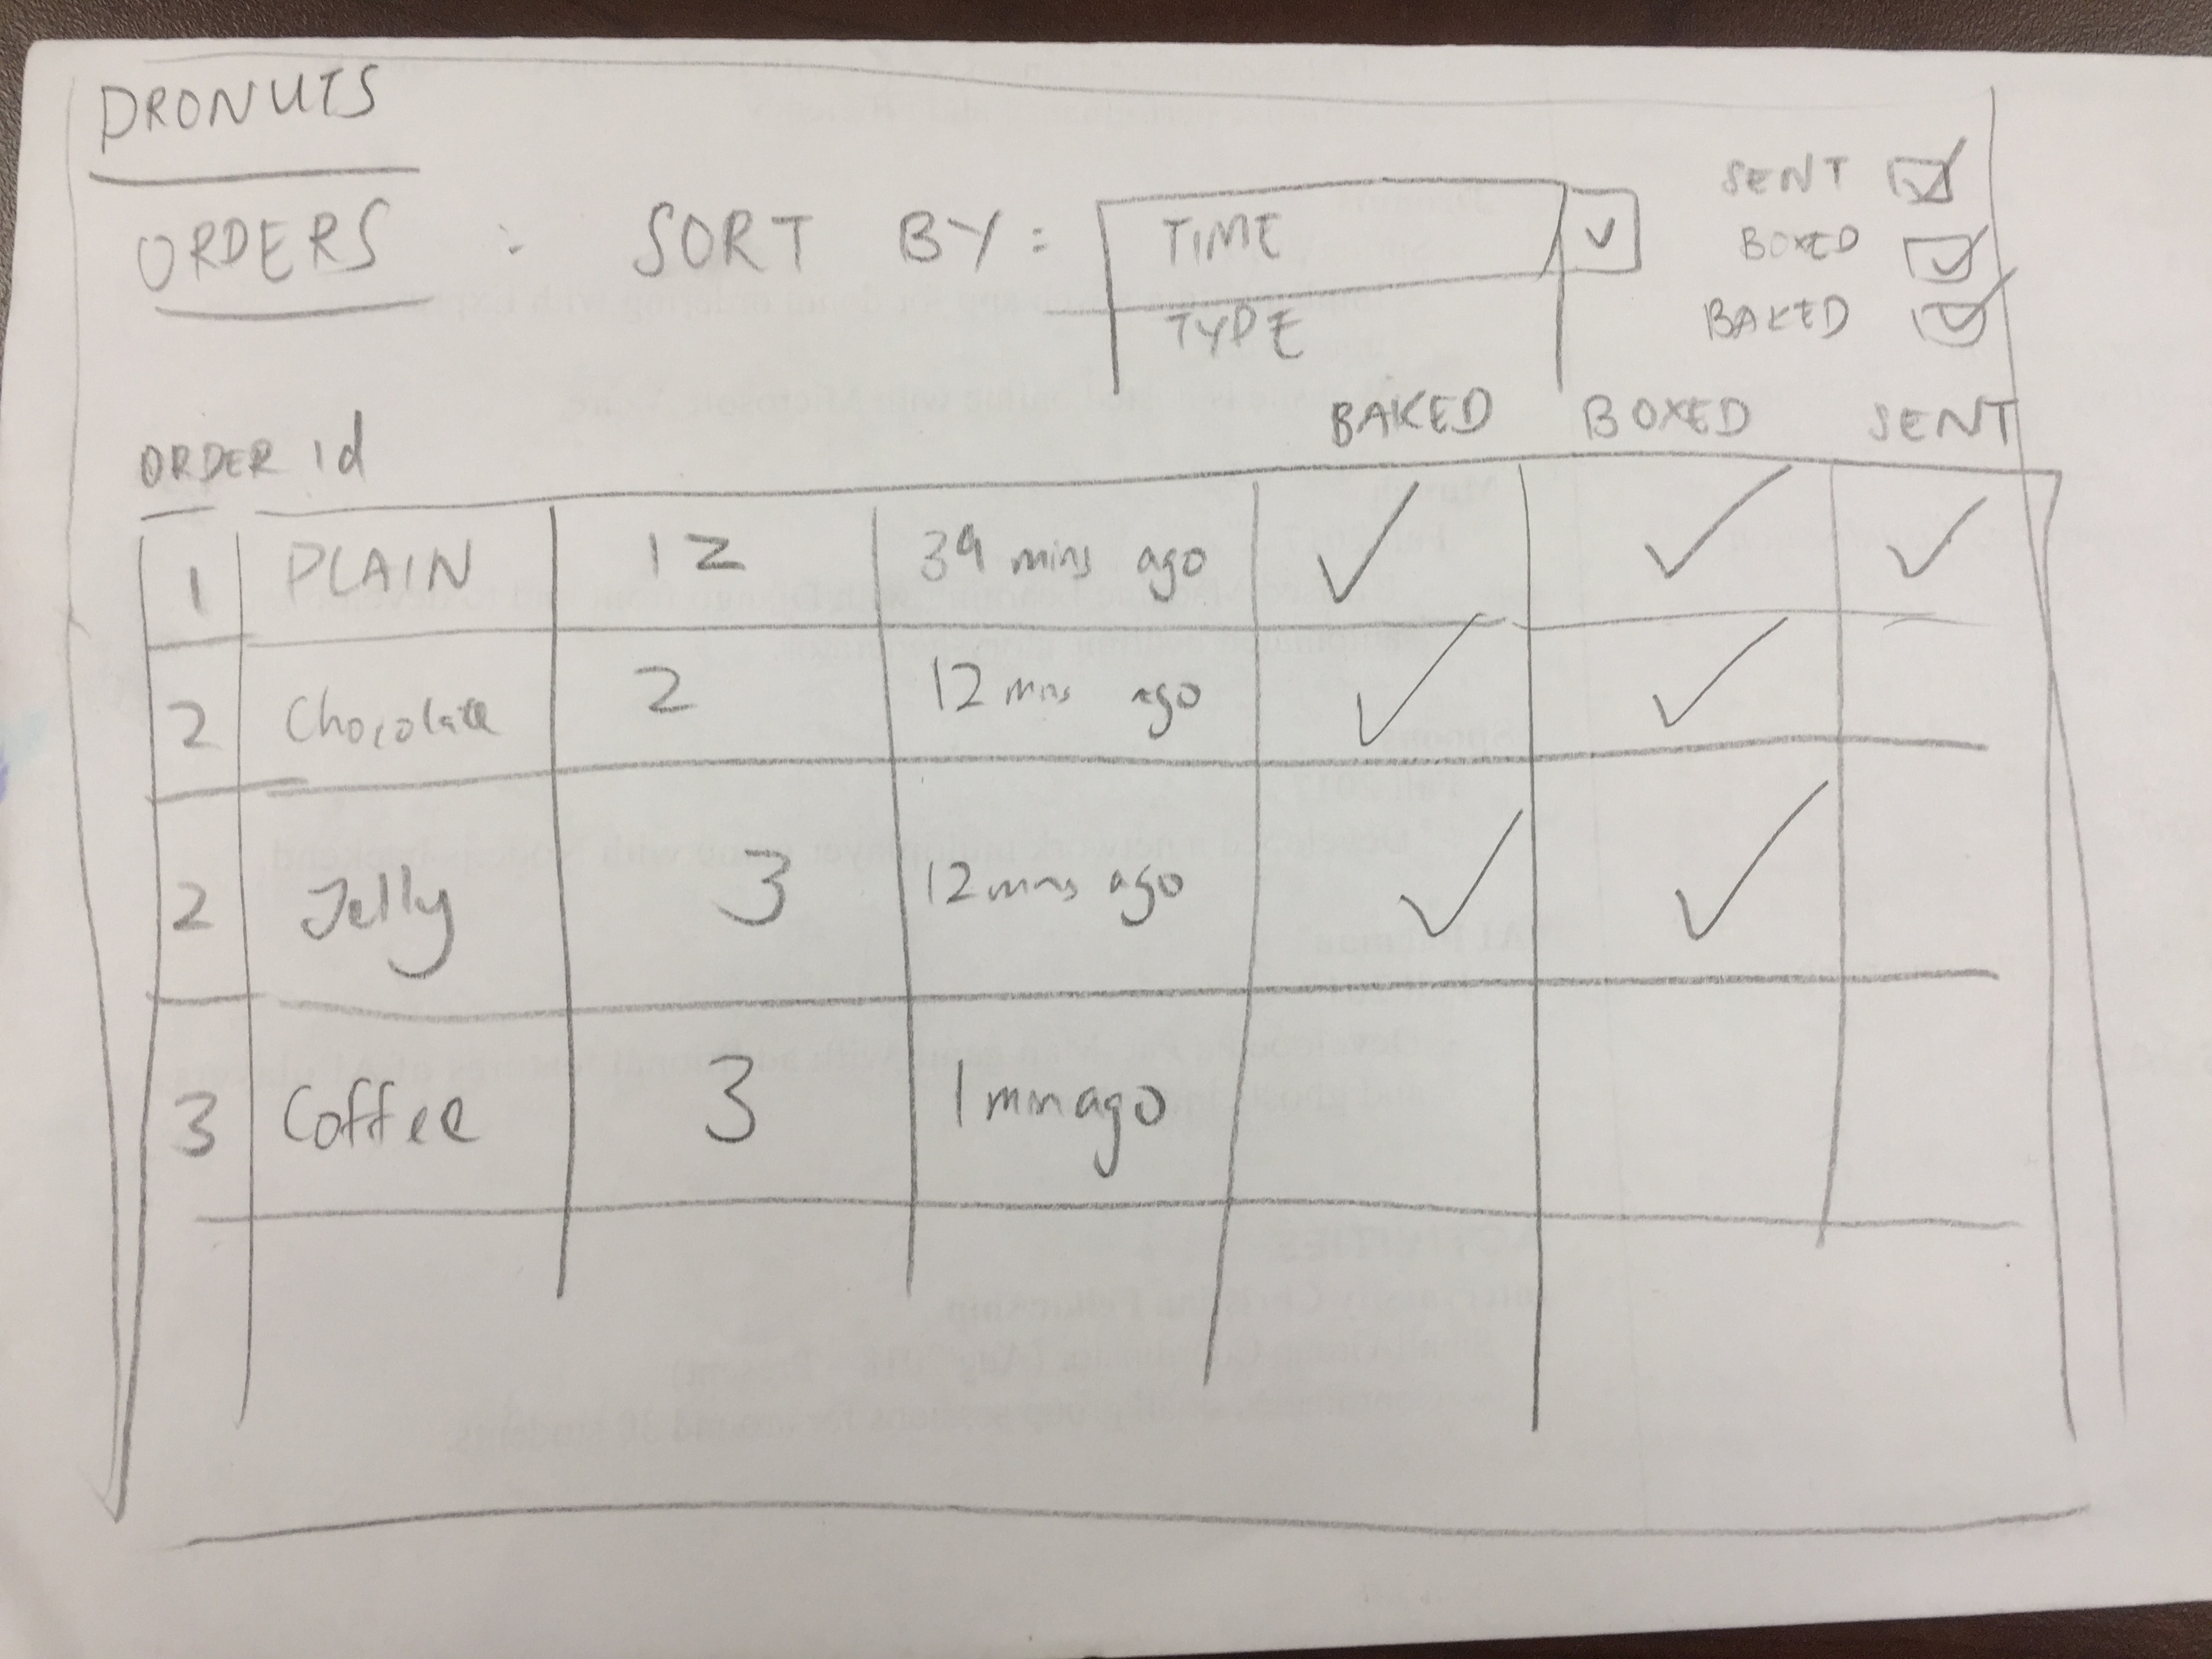 DRONUTS
ORDERS : SORT BY : TIME
TYPE
SENT
BOXED
BAKED
ORDER id BAKED BOXED SENT
1 PLAIN 12 39 mins ago ✓ ✓ ✓
2 Chocolate 2 12 mins ago ✓ ✓
2 Jelly 3 12 mins ago ✓ ✓
3 Coffee 3 1 min ago